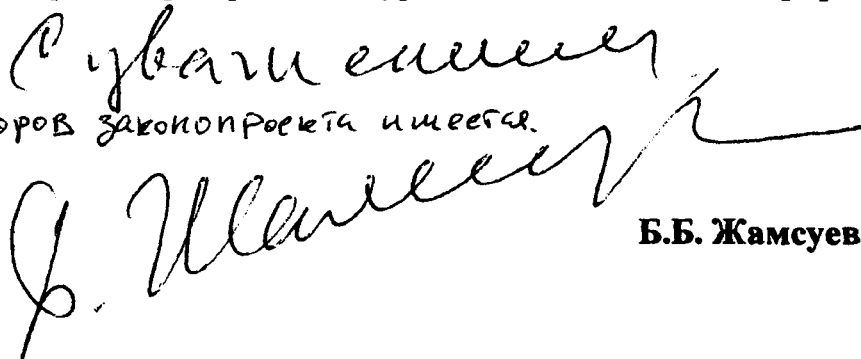 С уважением
оров законопроекта имеется.
Б.Б. Жамсуев